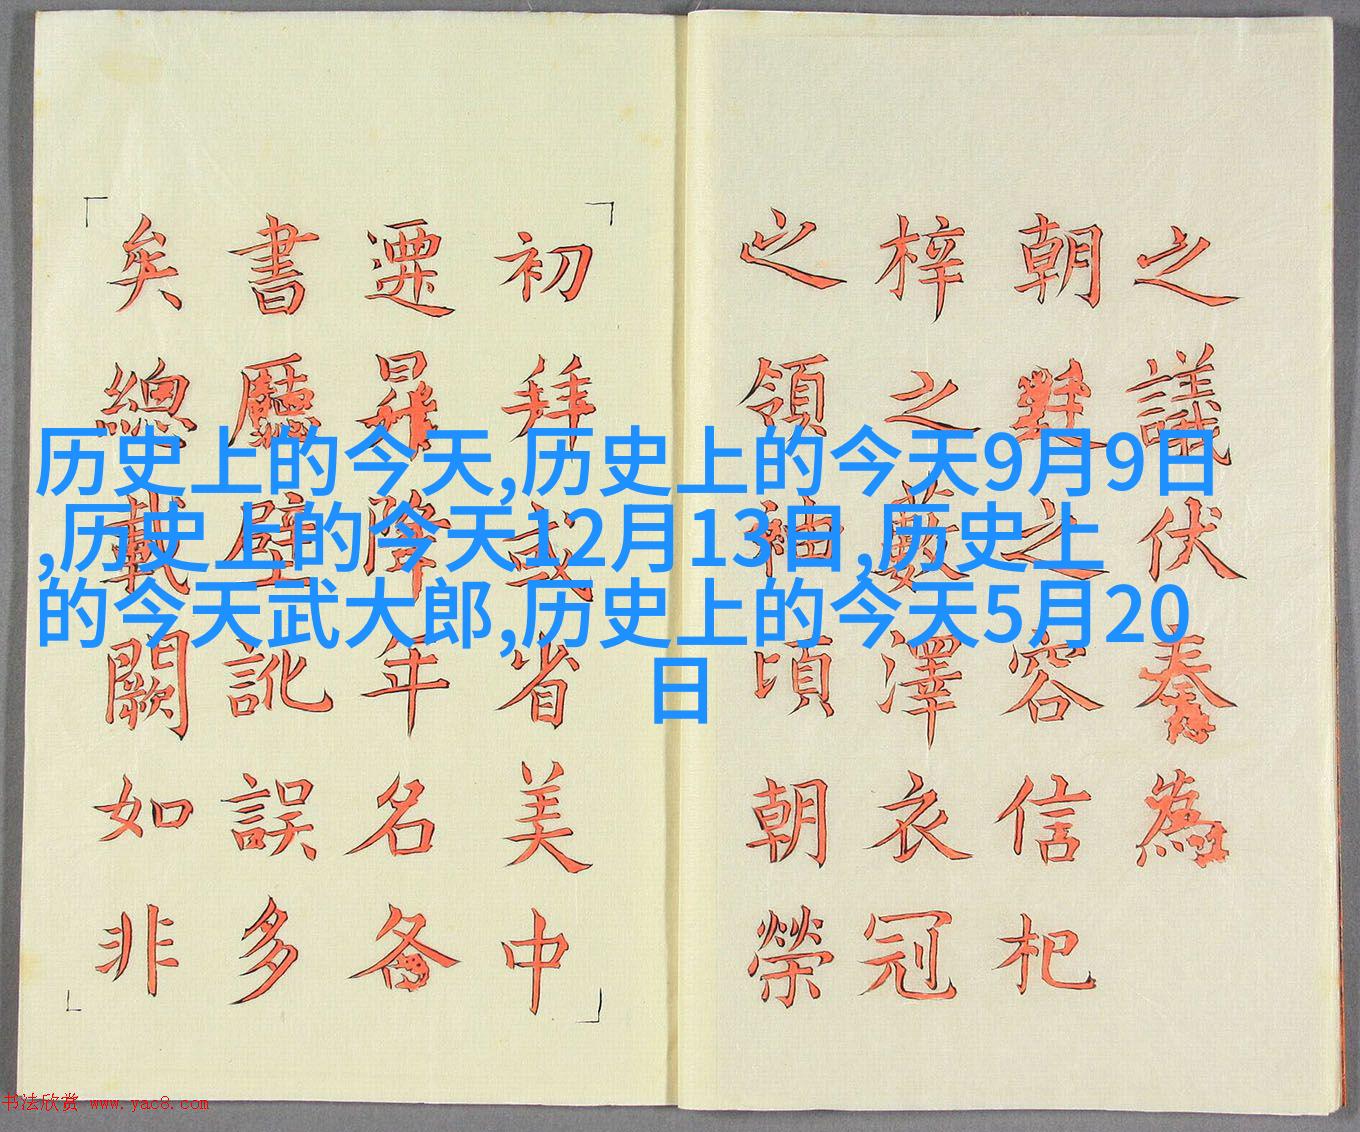 之議伏奏為
朝之容信杞
梓之藪澤衣冠
之領袖頃朝榮
初拜或省美中
遷昇降年名各
書廳壁訛誤多
矣總載闕如非
历史上的今天,历史上的今天9月9日
,历史上的今天12月13日,历史上
的今天武大郎,历史上的今天5月20
日
书法欣赏 www.yac8.com